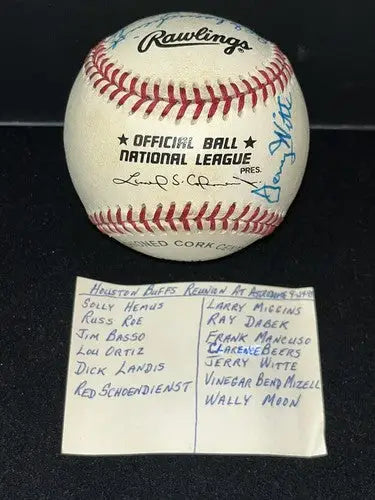 Rawlings
★ OFFICIAL BALL ★
NATIONAL LEAGUE
PRES.
Jerry Witte
CORK CEN
HOUSTON BUFFS REUNION AT ASTRODOME
SOLLY HEMUS
RUSS ROE
JIM BASSO
LOU ORTIZ
DICK LANDIS
RED SCHOENDIENST
LARRY MIGGINS
RAY DABEK
FRANK MANCUSO
CLARENCE BEERS
JERRY WITTE
VINEGAR BEND MIZELL
WALLY MOON